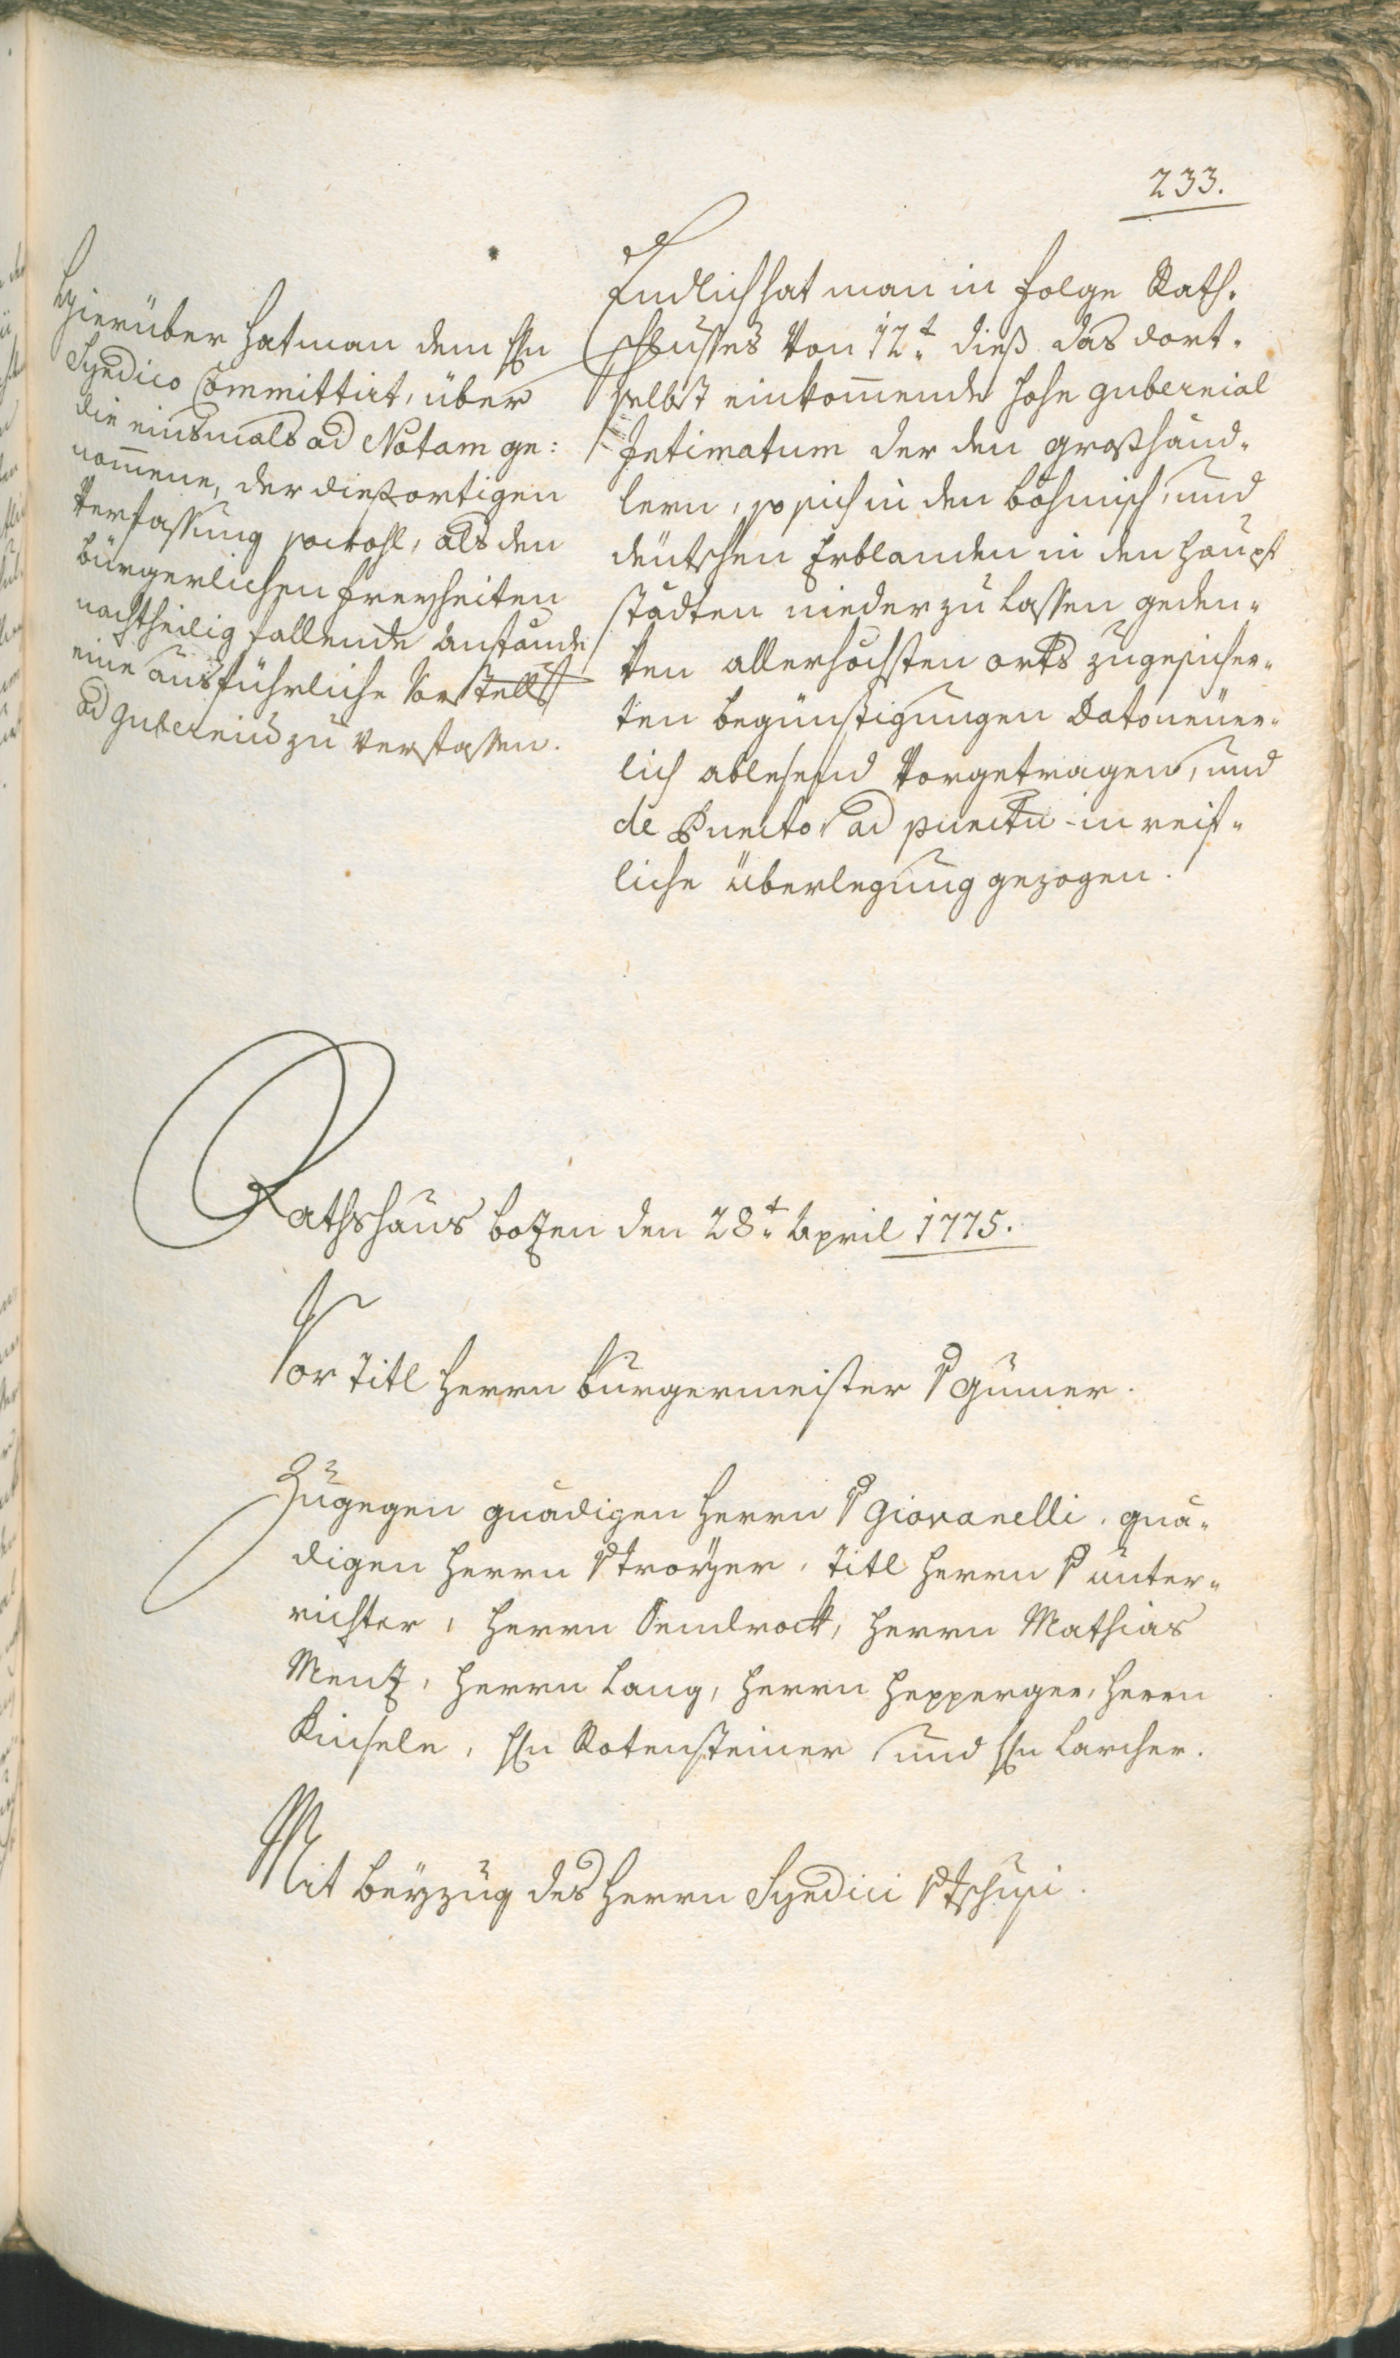 233.
Hierüber hat man dem Hhn
Syndico Committirt, über
die einsmals ad Notam ge:
nom̄ene, der dießortigen
Verfassung sowohl, als den
bürgerlichen Freyheiten
nachtheilig fallende Anstände
eine ausführliche Vorstellg
ad Guberniū zu verfassen.
Endlich hat man in Folge Rath-
schlusses von 12t dieß das dort-
selbst einkom̄ende hohe Gubernial
Intimatum der den Großhänd-
lern, so sich in den böhmisch, und
deutschen Erblanden in den Haupt
städten niederzulassen geden-
ken allerhöchsten Orts zugesicher-
ten begünstigungen Dato neuer-
lich ablesend vorgetragen, und
de Puncto ad punctū in reif-
liche Überlegung gezogen.
Rathshaus Bozen den 28t April 1775.
Vor Titl Herrn Burgermeister v Gumer.
Zugegen gnädigen Herrn v Giovanelli, gnä-
digen Herrn v Troyer, Titl Herrn v Unter-
richter, Herrn Sendrock, Herrn Mathias
Menz, Herrn Lang, Herrn Hepperger, Herrn
Kinsele, Hhn Rotensteiner und Hhn Larcher.
Mit Beyzug des Herrn Syndici v Tschusi.